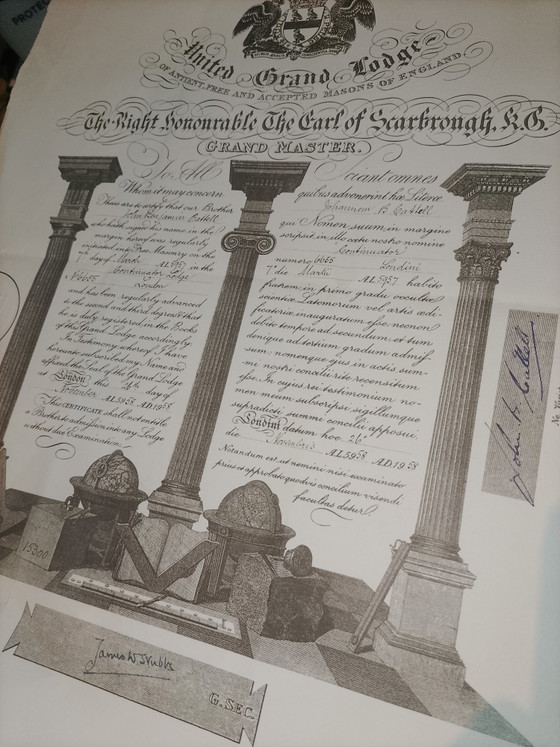 PROTE
United Grand Lodge
OF ANTIENT, FREE AND ACCEPTED MASONS OF ENGLAND.
The Right Honourable The Earl of Scarbrough, K.G.
GRAND MASTER.
To All
Whom it may concern
These are to certify that our Brother
John Benjamin Cattell
who hath signed his name in the
margin hereof was regularly
initiated into Free Masonry on the
day of March A.L. 5957 in the
Continuator Lodge
No 6665 London
and has been regularly advanced
to the second and third degrees & that
he is duly registered in the Books
of the Grand Lodge accordingly.
In Testimony whereof I have
hereunto subscribed my Name and
affixed the Seal of the Grand Lodge
at London, this 26th day of
November A.L. 5958 A.D. 1958
This CERTIFICATE shall not entitle
a Brother to admission into any Lodge
without due Examination.
ocant omnes
quibus advenerint hæ Literæ
Johannem B Cattell
qui Nomen suum in margine
scripsit, in illo cœtu nostro nomine
Continuator
numero 6665 Londini
7 die Martii A.L. 5957 habito
fratrem in primo gradu occultæ
scientiæ Latomorum vel artis ædi-
ficatoriæ inauguratum esse, necnon
debito tempore ad secundum, et tum
denique ad tertium gradum admis-
sum: nomenque ejus in actis sum-
mi nostri concilii rite recensitum
esse. In cujus rei testimonium no-
men meum subscripsi sigillumque
supradicti summi concilii apposui.
Londini datum hoc 26
die Novembris A.L. 5958 A.D. 1958
Notandum est, ut nemini nisi examinato
prius et approbato quodvis concilium visendi
facultas detur.
John B. Cattell
15300
James W Stubbs
G. SEC.
No.